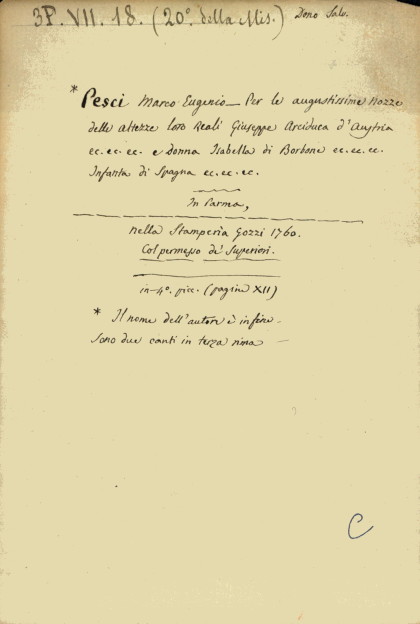 3P. VII. 18. (20°. della Mis.) Dono Salv.
* Pesci Marco Eugenio _ Per le augustissime Nozze
delle altezze loro Reali Giuseppe Arciduca d'Austria
ec. ec. ec. e donna Isabella di Borbone ec. ec. ec.
Infanta di Spagna ec. ec. ec.
In Parma,
nella Stamperia Gozzi 1760.
Col permesso de' Superiori.
in-4°. picc. (pagine XII)
* Il nome dell'autore è in fine _
Sono due canti in terza rima _
C